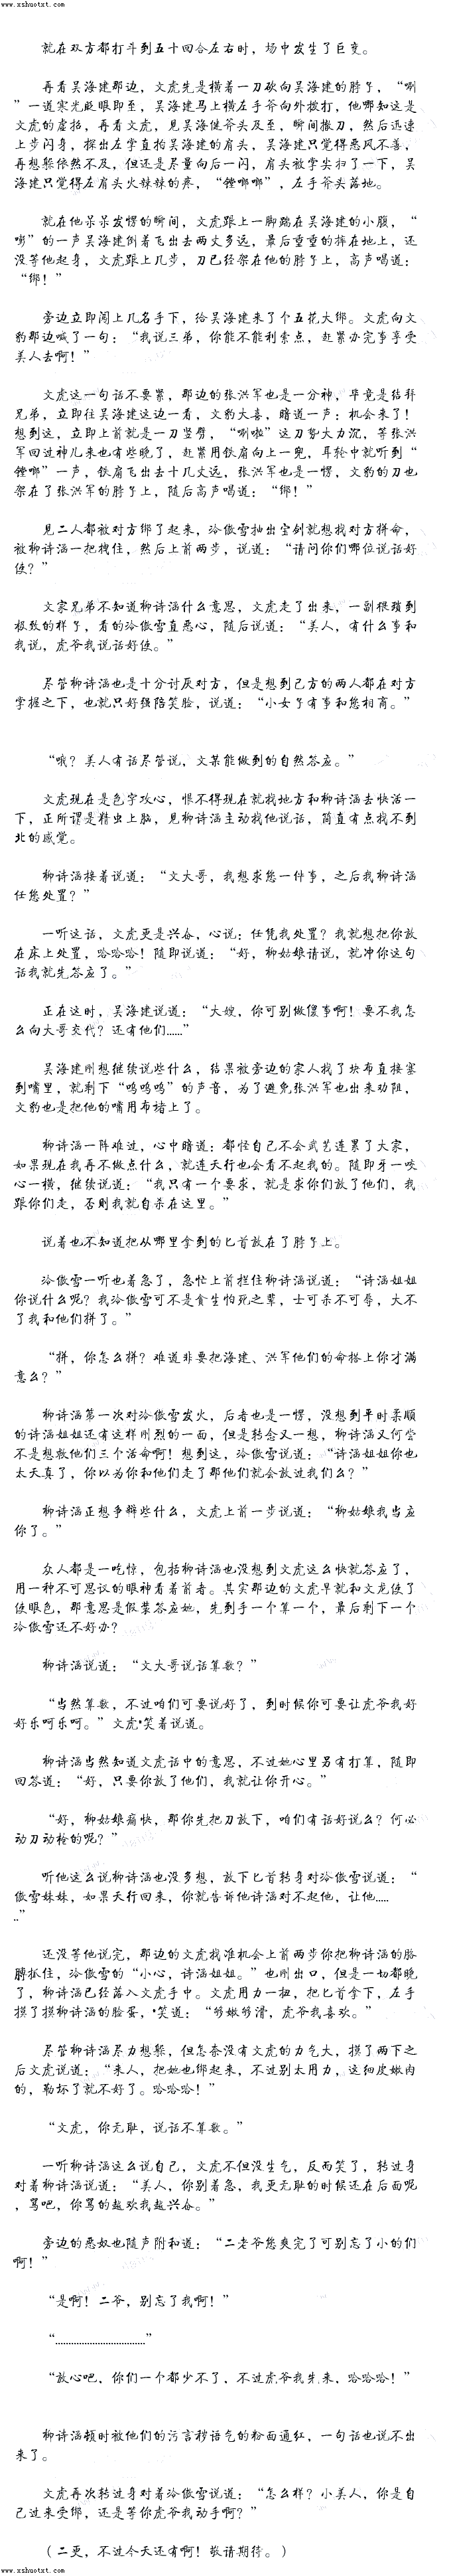 www.xshuotxt.com
就在双方都打斗到五十回合左右时，场中发生了巨变。
再看吴海建那边，文虎先是横着一刀砍向吴海建的脖子，“唰
”一道寒光眨眼即至，吴海建马上横左手斧向外拨打，他哪知这是
文虎的虚招，再看文虎，见吴海健斧头及至，瞬间撤刀，然后迅速
上步闪身，探出左掌直拍吴海建的肩头，吴海建只觉得恶风不善，
再想躲依然不及，但还是尽量向后一闪，肩头被掌尖扫了一下，吴
海建只觉得左肩头火辣辣的疼，“镗啷啷”，左手斧头落地。
就在他呆呆发愣的瞬间，文虎跟上一脚踹在吴海建的小腹，“
嘭”的一声吴海建倒着飞出去两丈多远，最后重重的摔在地上，还
没等他起身，文虎跟上几步，刀已经架在他的脖子上，高声喝道：
“绑！”
旁边立即闯上几名手下，给吴海建来了个五花大绑。文虎向文
豹那边喊了一句：“我说三弟，你能不能利索点，赶紧办完事享受
美人去啊！”
文虎这一句话不要紧，那边的张洪军也是一分神，毕竟是结拜
兄弟，立即往吴海建这边一看，文豹大喜，暗道一声：机会来了！
想到这，立即上前就是一刀竖劈，“唰啦”这刀势大力沉，等张洪
军回过神儿来也有些晚了，赶紧用铁扇向上一兜，耳轮中就听到“
镗啷”一声，铁扇飞出去十几丈远，张洪军也是一愣，文豹的刀也
架在了张洪军的脖子上，随后高声喝道：“绑！”
见二人都被对方绑了起来，冷傲雪抽出宝剑就想找对方拼命，
被柳诗涵一把拽住，然后上前两步，说道：“请问你们哪位说话好
使？”
文家兄弟不知道柳诗涵什么意思，文虎走了出来，一副猥琐到
极致的样子，看的冷傲雪直恶心，随后说道：“美人，有什么事和
我说，虎爷我说话好使。”
尽管柳诗涵也是十分讨厌对方，但是想到己方的两人都在对方
掌握之下，也就只好强陪笑脸，说道：“小女子有事和您相商。”
“哦？美人有话尽管说，文某能做到的自然答应。”
文虎现在是色字攻心，恨不得现在就找地方和柳诗涵去快活一
下，正所谓是精虫上脑，见柳诗涵主动找他说话，简直有点找不到
北的感觉。
柳诗涵接着说道：“文大哥，我想求您一件事，之后我柳诗涵
任您处置？”
一听这话，文虎更是兴奋，心说：任凭我处置？我就想把你放
在床上处置，哈哈哈！随即说道：“好，柳姑娘请说，就冲你这句
话我就先答应了。”
正在这时，吴海建说道：“大嫂，你可别做傻事啊！要不我怎
么向大哥交代？还有他们......”
吴海建刚想继续说些什么，结果被旁边的家人找了块布直接塞
到嘴里，就剩下“呜呜呜”的声音，为了避免张洪军也出来劝阻，
文豹也是把他的嘴用布堵上了。
柳诗涵一阵难过，心中暗道：都怪自己不会武艺连累了大家，
如果现在我再不做点什么，就连天行也会看不起我的。随即牙一咬
心一横，继续说道：“我只有一个要求，就是求你们放了他们，我
跟你们走，否则我就自杀在这里。”
说着也不知道把从哪里拿到的匕首放在了脖子上。
冷傲雪一听也着急了，急忙上前拦住柳诗涵说道：“诗涵姐姐
你说什么呢？我冷傲雪可不是贪生怕死之辈，士可杀不可辱，大不
了我和他们拼了。”
“拼，你怎么拼？难道非要把海建、洪军他们的命搭上你才满
意么？”
柳诗涵第一次对冷傲雪发火，后者也是一愣，没想到平时柔顺
的诗涵姐姐还有这样刚烈的一面，但是转念又一想，柳诗涵又何尝
不是想救他们三个活命啊！想到这，冷傲雪说道：“诗涵姐姐你也
太天真了，你以为你和他们走了那他们就会放过我们么？”
柳诗涵正想争辩些什么，文虎上前一步说道：“柳姑娘我当应
你了。”
众人都是一吃惊，包括柳诗涵也没想到文虎这么快就答应了，
用一种不可思议的眼神看着前者。其实那边的文虎早就和文龙使了
使眼色，那意思是假装答应她，先到手一个算一个，最后剩下一个
冷傲雪还不好办？
柳诗涵说道：“文大哥说话算数？”
“当然算数，不过咱们可要说好了，到时候你可要让虎爷我好
好乐呵乐呵。”文虎*笑着说道。
柳诗涵当然知道文虎话中的意思，不过她心里另有打算，随即
回答道：“好，只要你放了他们，我就让你开心。”
“好，柳姑娘痛快，那你先把刀放下，咱们有话好说么？何必
动刀动枪的呢？”
听他这么说柳诗涵也没多想，放下匕首转身对冷傲雪说道：“
傲雪妹妹，如果天行回来，你就告诉他诗涵对不起他，让他.....
..”
还没等他说完，那边的文虎找准机会上前两步你把柳诗涵的胳
膊抓住，冷傲雪的“小心，诗涵姐姐。”也刚出口，但是一切都晚
了，柳诗涵已经落入文虎手中。文虎用力一扭，把匕首拿下，左手
摸了摸柳诗涵的脸蛋，*笑道：“够嫩够滑，虎爷我喜欢。”
尽管柳诗涵尽力想躲，但怎奈没有文虎的力气大，摸了两下之
后文虎说道：“来人，把她也绑起来，不过别太用力，这细皮嫩肉
的，勒坏了就不好了。哈哈哈！”
“文虎，你无耻，说话不算数。”
一听柳诗涵这么说自己，文虎不但没生气，反而笑了，转过身
对着柳诗涵说道：“美人，你别着急，我更无耻的时候还在后面呢
，骂吧，你骂的越欢我越兴奋。”
旁边的恶奴也随声附和道：“二老爷您爽完了可别忘了小的们
啊！”
“是啊！二爷，别忘了我啊！”
“..................................”
“放心吧，你们一个都少不了，不过虎爷我先来，哈哈哈！”
柳诗涵顿时被他们的污言秽语气的粉面通红，一句话也说不出
来了。
文虎再次转过身对着冷傲雪说道：“怎么样？小美人，你是自
己过来受绑，还是等你虎爷我动手啊？”
（二更，不过今天还有啊！敬请期待。）
www.xshuotxt.com